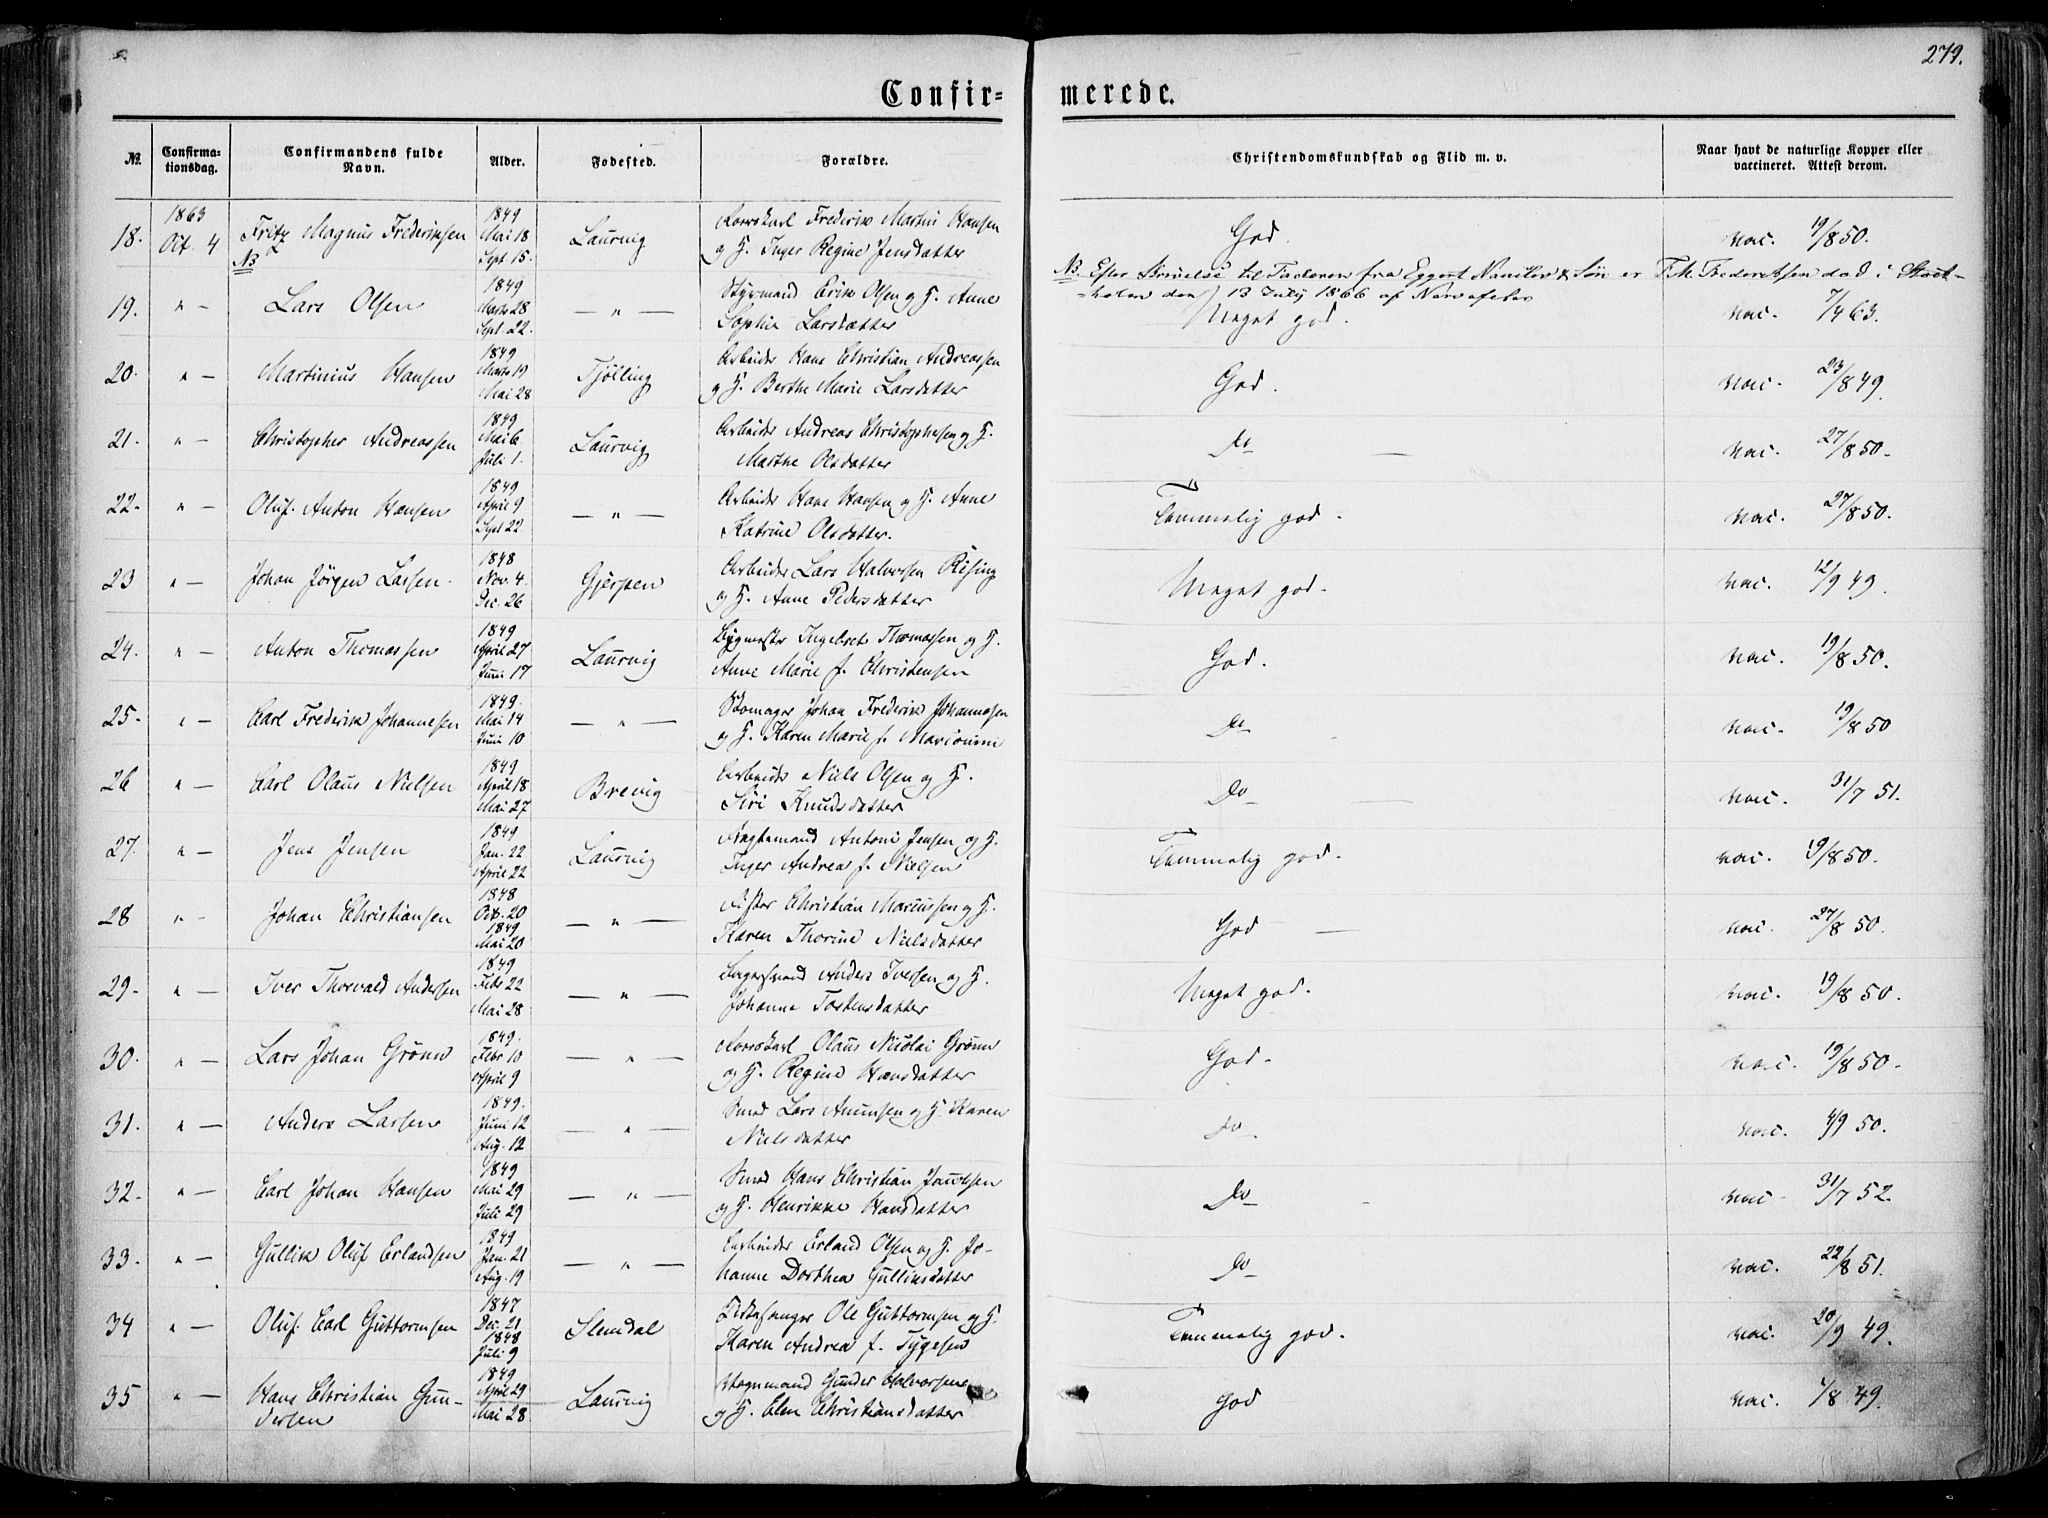 279.
Confir- merede.
№. Confirma- Confirmandens fulde Alder. Fødested. Forældre. Christendomskundskab og Flid m. v. Naar havt de naturlige Kopper eller
tionsdag. Navn. vaccineret. Attest derom.
1863 1849 Frederik Martin Hansen
18. Oct. 4 Fritz Magnus Frederiksen Mai 18 Laurvig og H. Inger Regine Jensdatter God. vac. 19/8 50.
NB Sept 15.
NB. Efter Skrivelse til Faderen fra Eggert & Søn er F. M. Frederiksen død i
den 13 July 1866 af
1849 Styrmand Erik Olsen og H. Anne
19. " — Lars Olsen Marts 28 — " — Sophie Larsdatter Meget god. vac. 7/4 63.
Sept. 22.
1849 Arbeider Hans Christian Andreassen
20. " — Martinius Hansen Marts 19 Tjølling og H. Berthe Marie Larsdatter God. vac. 23/8 49.
Mai 28
1849 Arbeider Andreas Christophersen og H.
21. " — Christopher Andreassen Mai 6 Laurvig Marthe Olsdatter Do — vac. 27/8 50.
Juli 1.
1849 Arbeider Hans Hansen og H. Anne
22. " — Oluf Anton Hansen April 9 — " — Katrine Olsdatter. Temmelig god. vac. 27/8 50.
Sept 22
1848 Arbeider Lars Halvorsen Rising
23 " — Johan Jörgen Larsen. Nov. 4. Gjerpen og H. Anne Pedersdatter Meget god. vac. 12/9 49.
Dec. 26
1849 Bygmester Ingebret Thomassen og H.
24. " — Anton Thomassen April 27 Laurvig Anne Marie f. Christensen God. vac. 19/8 50.
Juni 17
1849. Skomager Johan Frederik Johannesen
25. " — Carl Frederik Johannesen Mai 14 — " — og H. Karen Marie f. Do vac. 19/8 50
Juni 10
1849 Arbeider Niels Olsen og H.
26 " — Carl Olaus Nielsen April 18 Brevig Siri Knudsdatter Do — vac. 31/7 51.
Mai 27
1849 Fragtemand Antoni Jensen og H.
27. " — Jens Jensen Jan. 22 Laurvig Inger Andrea f. Nielsen Temmelig god. vac. 19/8 50.
April 22
1848 Fisker Christian Marcussen og H.
28 " — Johan Christiansen Oct. 20 — " — Karen Thorine Nielsdatter God — vac. 27/8 50.
1849
Mai 20
1849 Anders Iversen og H.
29. " — Iver Thorvald Andersen Febr 22 — " — Johanne Torstensdatter Meget god. vac. 19/8 50.
Mai 28
1849. Olaus Nicolai Grönn
30. " — Lars Johan Grönn Febr 10 — " — og H. Regine Hansdatter God. vac. 19/8 50.
April 9
1849. Smed Lars Amunsen og H. Karen
31. " — Anders Larsen Juni 12 — " — Nielsdatter Do vac. 4/9 50.
Aug. 12
1849 Smed Hans Christian
32. " — Carl Johan Hansen Mai 29 — " — og H. Henrikke Hansdatter Do vac 31/7 52.
Juli 29
1849 Arbeider Erland Olsen og H. Jo-
33. " — Gullik Oluf Erlandsen Jan. 21 — " — hanne Dorthea Gulliksdatter Do vac. 22/8 51.
Aug. 19
1847 Ole Guttormsen og H.
34 " — Oluf Carl Guttormsen Dec. 21 Slemdal Karen Andrea f. Tygesen Temmelig god. vac. 20/9 49.
1848
Juli 9
1849 Vognmand Gunder Halvorsen
35 " — Hans Christian Gun- April 29 Laurvig og H. Elen Christiansdatter god vac. 1/8 49.
dersen Mai 28